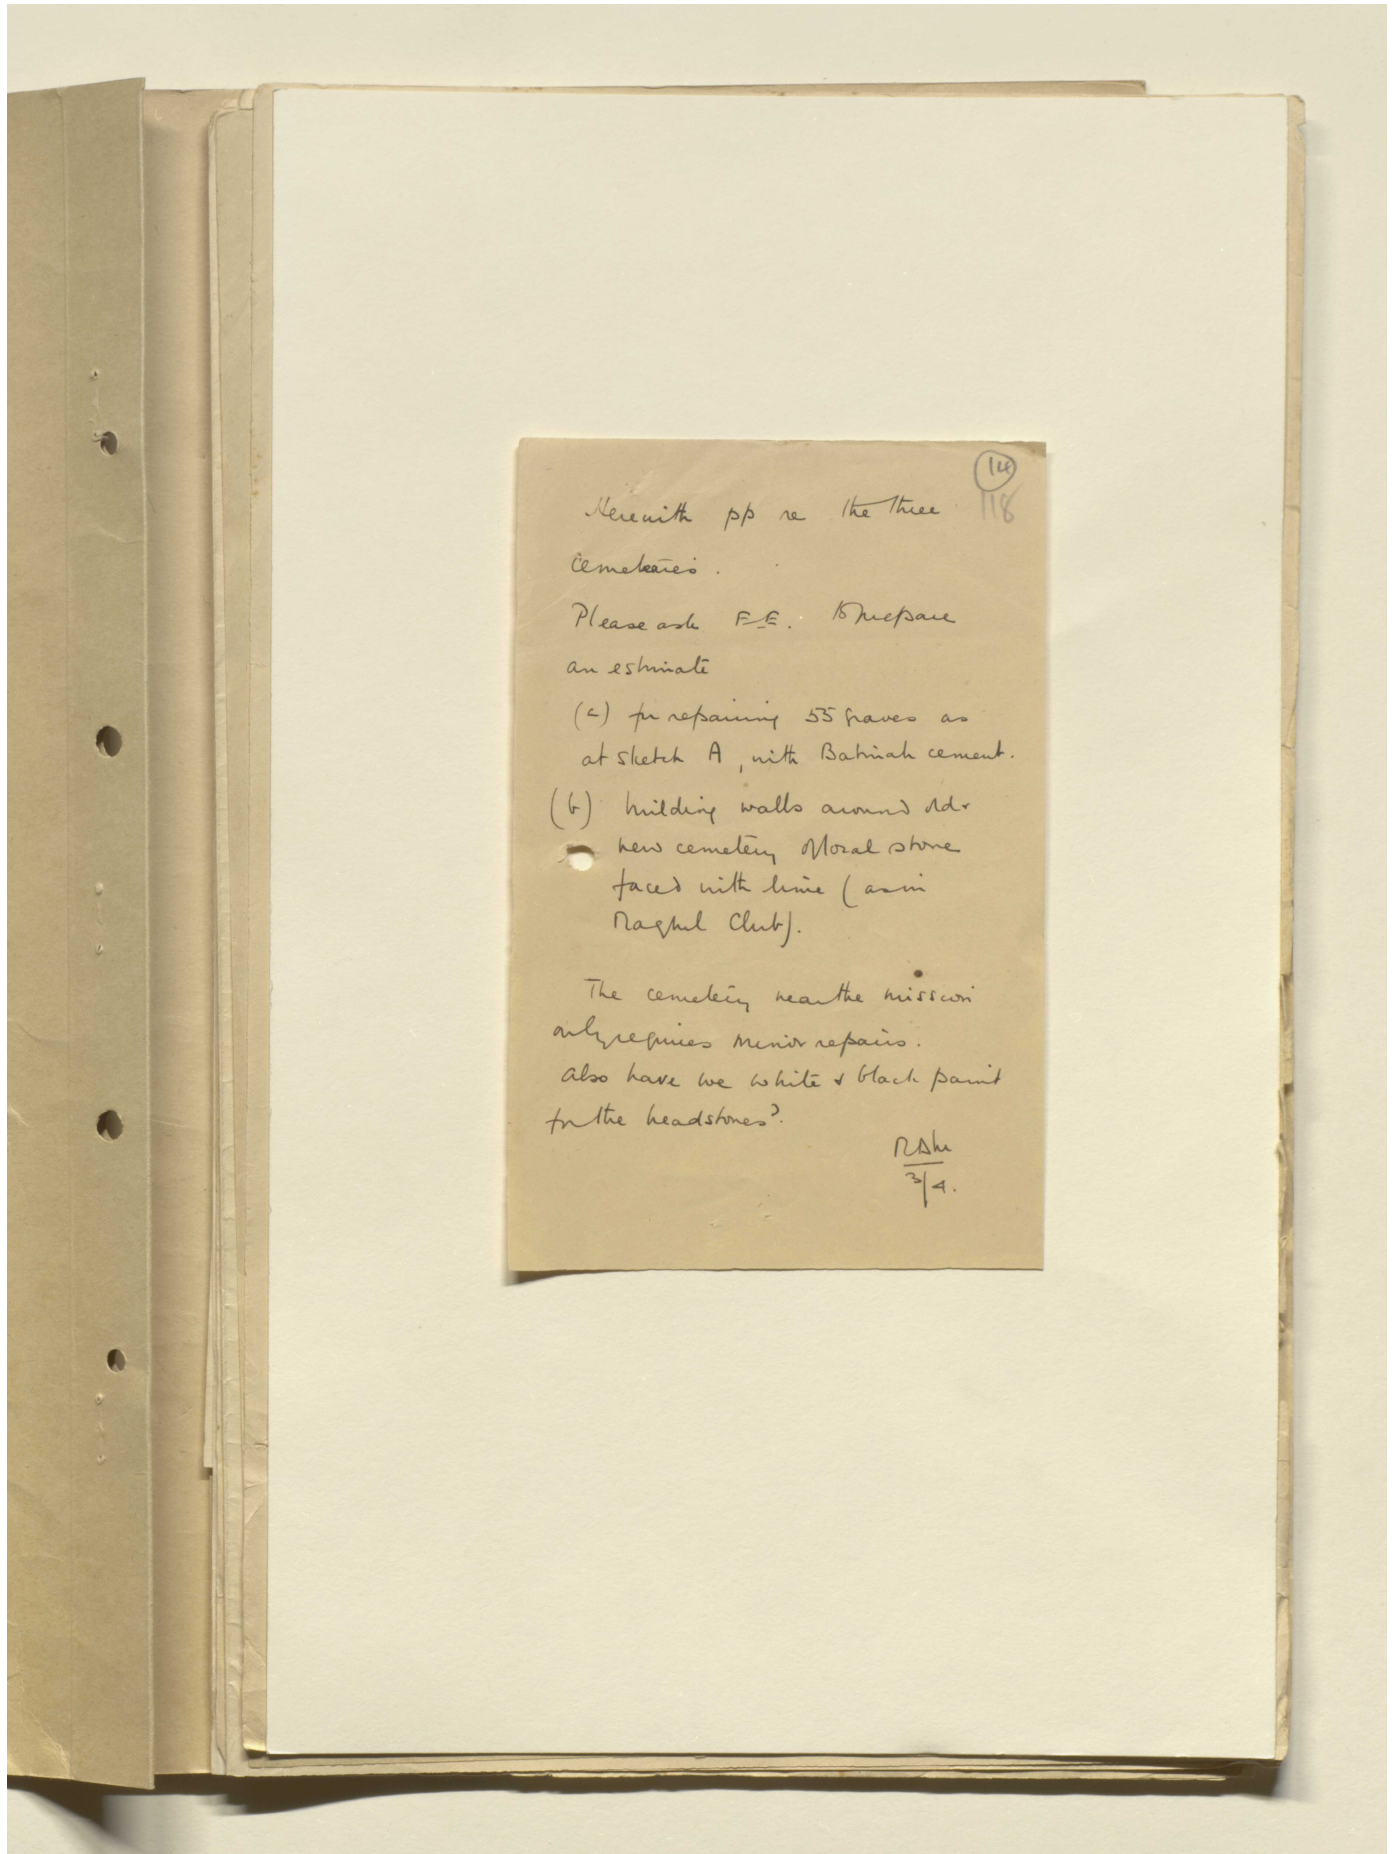 14
118
Herewith pp re the three
cemeteries.
Please ask F.E. to prepare
an estimate
(a) for repairing 55 graves as
at sketch A, with Batinah cement.
(b) building walls around old &
new cemetery of local stone
faced with lime (as in
Maghul Club).
The cemetery near the mission
only requires minor repairs.
Also have we white & black paint
for the headstones?
3/4.